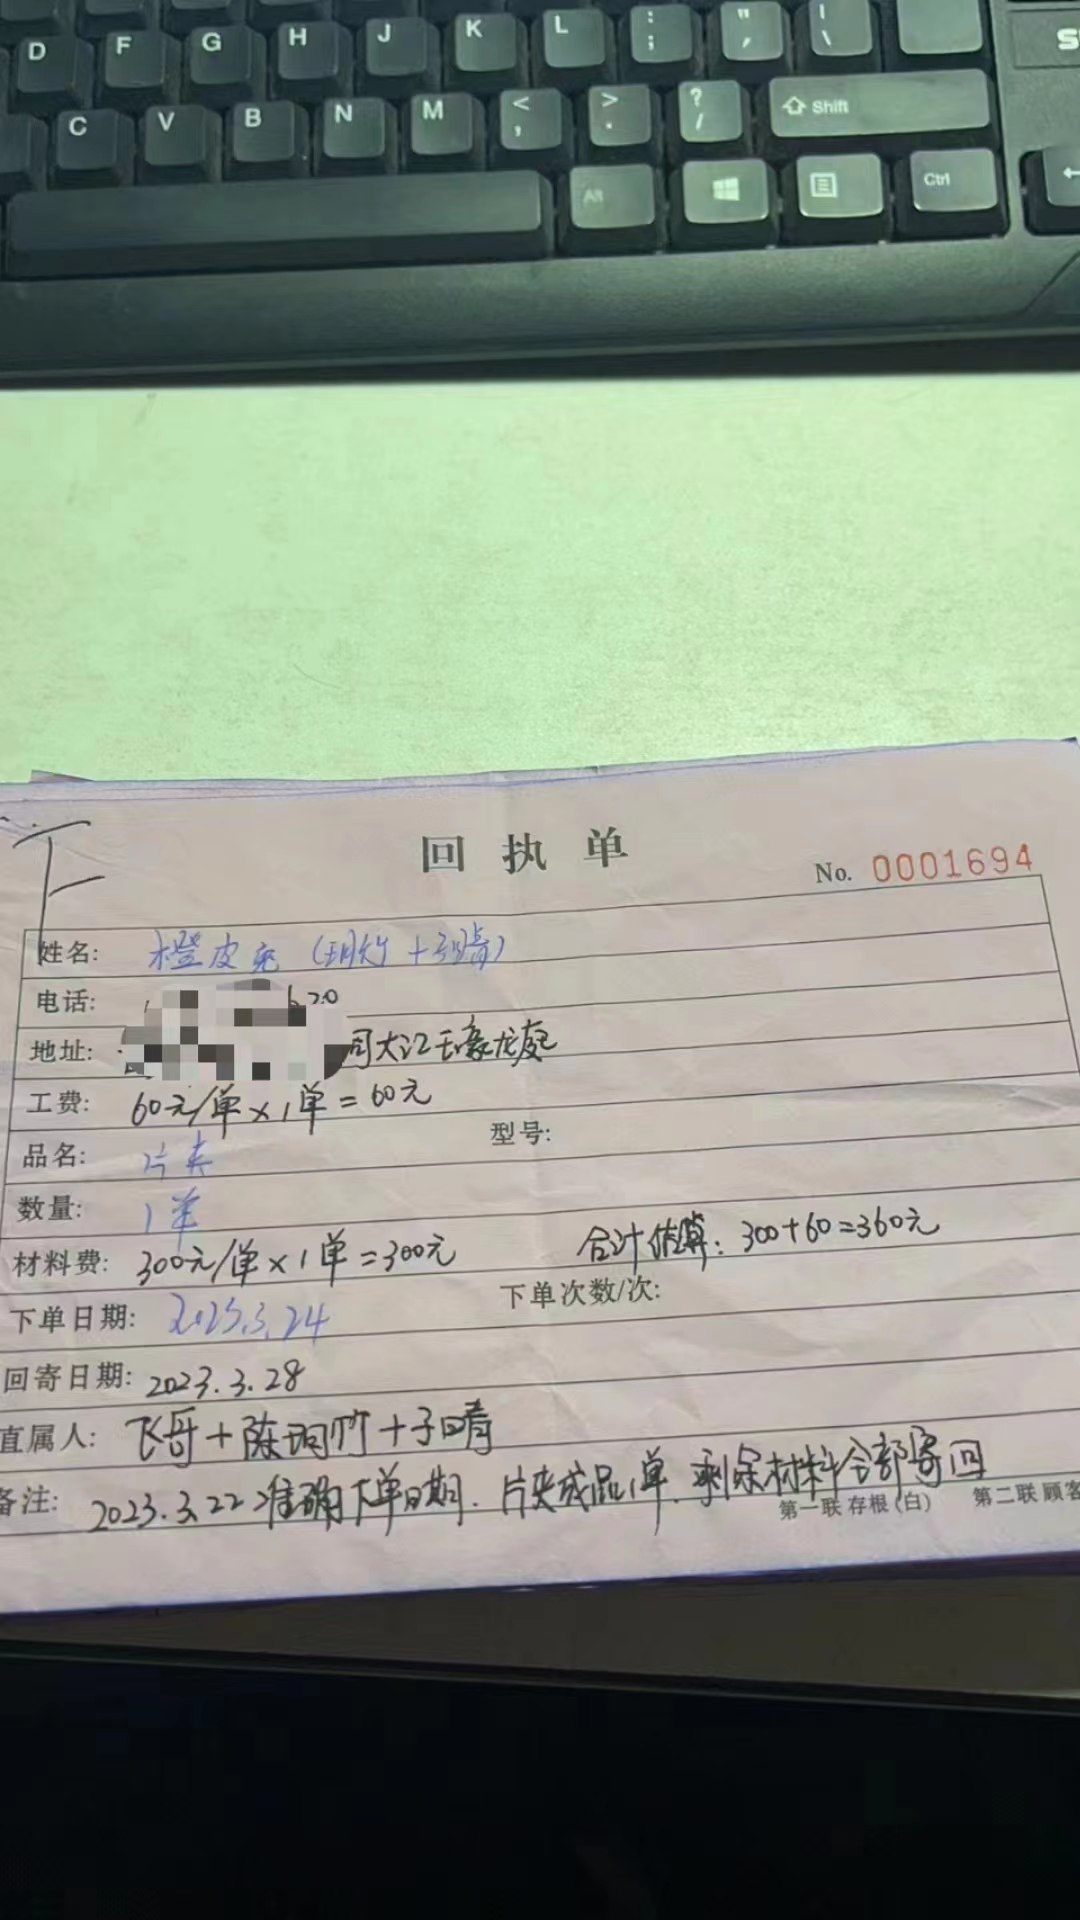 D F G H J K L : ; " ' | \
C V B N M < , > . ? / Shift
Alt Ctrl
回执单
No. 0001694
姓名: 橙皮 (玥竹+子晴)
电话: 620
地址: 同大江玉豪龙庭
工费: 60元/单×1单=60元
品名: 片夹 型号:
数量: 1单
材料费: 300元/单×1单=300元 合计结算: 300+60=360元
下单日期: 2023.3.24 下单次数/次:
回寄日期: 2023.3.28
直属人: 飞哥+陈玥竹+子晴
备注: 2023.3.22准确下单日期.片夹成品1单.剩余材料全部寄回
第一联 存根(白) 第二联 顾客